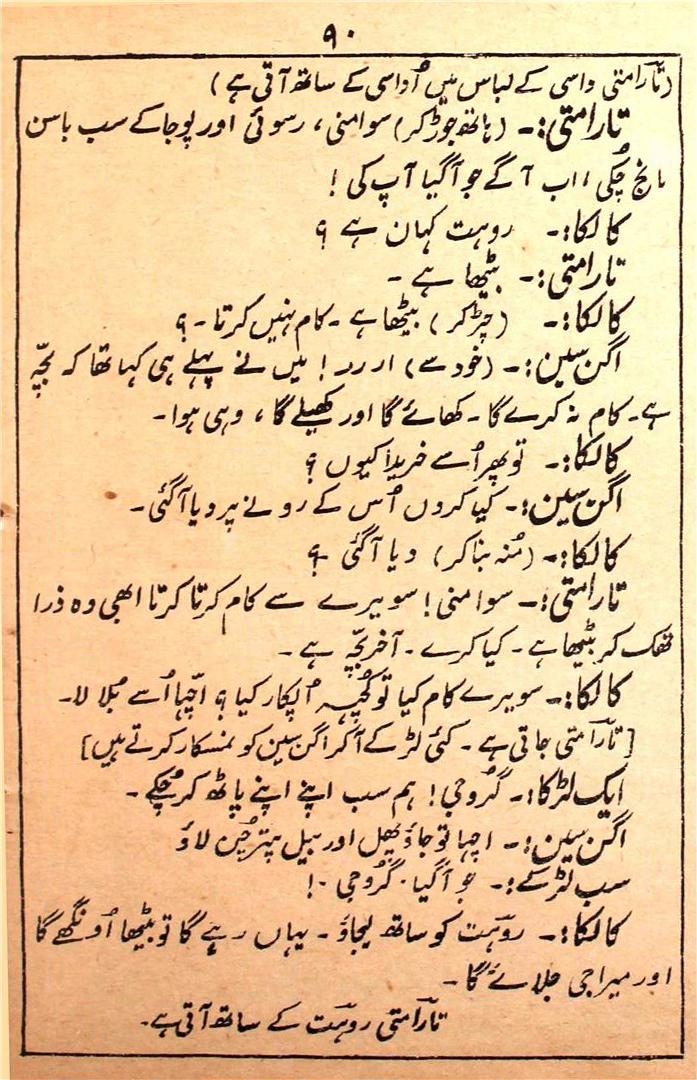 ۹۰
(تارامتی داسی کے لباس میں اُداسی کے ساتھ آتی ہے)
تارامتی:۔ (ہاتھ جوڑ کر) سوامنی، رسوئی اور پوجا کے سب باسن
مانج چُکی، اب آگے جو آگیا آپ کی!
کالکا:۔ روہت کہان ہے؟
تارامتی:۔ بیٹھا ہے۔
کالکا:۔ (چڑ کر) بیٹھا ہے۔ کام نہیں کرتا۔؟
اگن سین:۔ (خود سے) اررر! میں نے پہلے ہی کہا تھا کہ بچّہ
ہے۔ کام نہ کرے گا۔ کھائے گا اور کھیلے گا، وہی ہوا۔
کالکا:۔ تو پھر اُسے خریدا کیوں؟
اگن سین:۔ کیا کروں اُس کے رونے پر دیا آگئی۔
کالکا:۔ (مُنہ بنا کر) دیا آگئی؟
تارامتی:۔ سوامنی! سویرے سے کام کرتا کرتا ابھی وہ ذرا
تھک کر بیٹھا ہے۔ کیا کرے۔ آخر بچّہ ہے۔
کالکا:۔ سویرے کام کیا تو کُچھ اُپکار کیا؟ اچّھا اُسے بُلا لا۔
[تارامتی جاتی ہے۔ کئی لڑکے آکر اگن سین کو نمسکار کرتے ہیں]
ایک لڑکا:۔ گروجی! ہم سب اپنے اپنے پاٹھ کر چُکے۔
اگن سین:۔ اچھا تو جاؤ پھل اور بیل پتر چُن لاؤ
سب لڑکے:۔ جو آگیا۔ گُروجی۔!
کالکا:۔ روہت کو ساتھ لیجاؤ۔ یہاں رہے گا تو بیٹھا اُونگھے گا
اور میرا جی جلائے گا۔
تارامتی روہت کے ساتھ آتی ہے۔